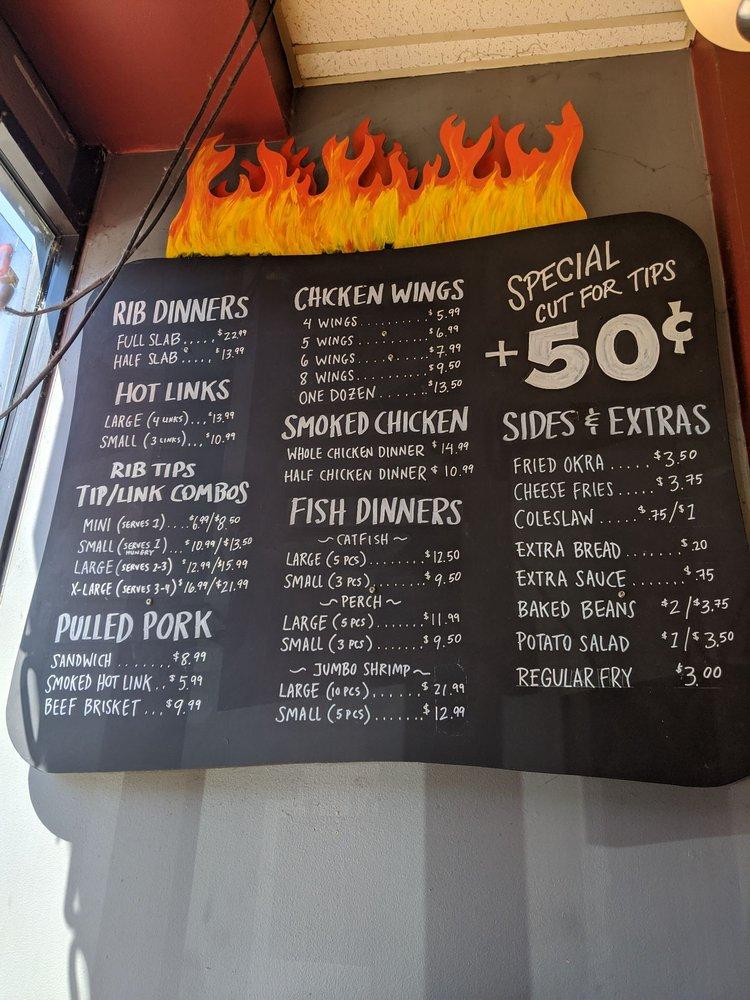 RIB DINNERS
FULL SLAB.....$22.99
HALF SLAB.....$13.99
HOT LINKS
LARGE (4 LINKS)...$13.99
SMALL (3 LINKS)...$10.99
RIB TIPS
TIP/LINK COMBOS
MINI (SERVES 1)....$6.99/$8.50
SMALL (SERVES 1 HUNGRY)...$10.99/$13.50
LARGE (SERVES 2-3) $12.99/$15.99
X-LARGE (SERVES 3-4) $16.99/$21.99
PULLED PORK
SANDWICH.......$8.99
SMOKED HOT LINK..$5.99
BEEF BRISKET...$9.99
CHICKEN WINGS
4 WINGS..........$5.99
5 WINGS..........$6.99
6 WINGS..........$7.99
8 WINGS..........$9.50
ONE DOZEN.......$13.50
SMOKED CHICKEN
WHOLE CHICKEN DINNER $14.99
HALF CHICKEN DINNER $10.99
FISH DINNERS
~CATFISH~
LARGE (5 PCS).......$12.50
SMALL (3 PCS).......$9.50
~PERCH~
LARGE (5 PCS).......$11.99
SMALL (3 PCS).......$9.50
~JUMBO SHRIMP~
LARGE (10 PCS).......$21.99
SMALL (5 PCS).......$12.99
SPECIAL
CUT FOR TIPS
+50¢
SIDES & EXTRAS
FRIED OKRA.....$3.50
CHEESE FRIES.....$3.75
COLESLAW.....$.75/$1
EXTRA BREAD.......$.20
EXTRA SAUCE.......$.75
BAKED BEANS $2/$3.75
POTATO SALAD $1/$3.50
REGULAR FRY $3.00